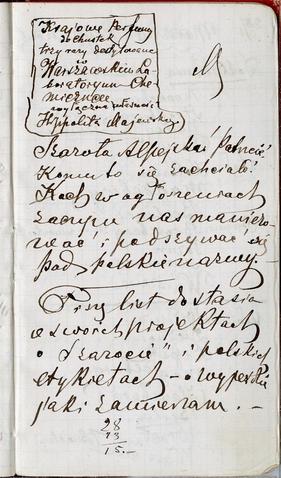 Krajowe Perfumy
do chustek
trzy razy destylowane
w
Warszawskim La-
boratoryum Che-
micznem
wyłączna własność
Hyppolit Majewski
M
Szarota Alpejska! Patrzcie!
Komu to się zachciało!
Kach w ogłoszeniach
zaczyna nas
i podszywać się
pod polskie nazwy.
Piszę list do Stasia
o swoich projektach
o „Szarocie" i polskich
etykietach – o
jaki zamierzam. –
28
13
15.–